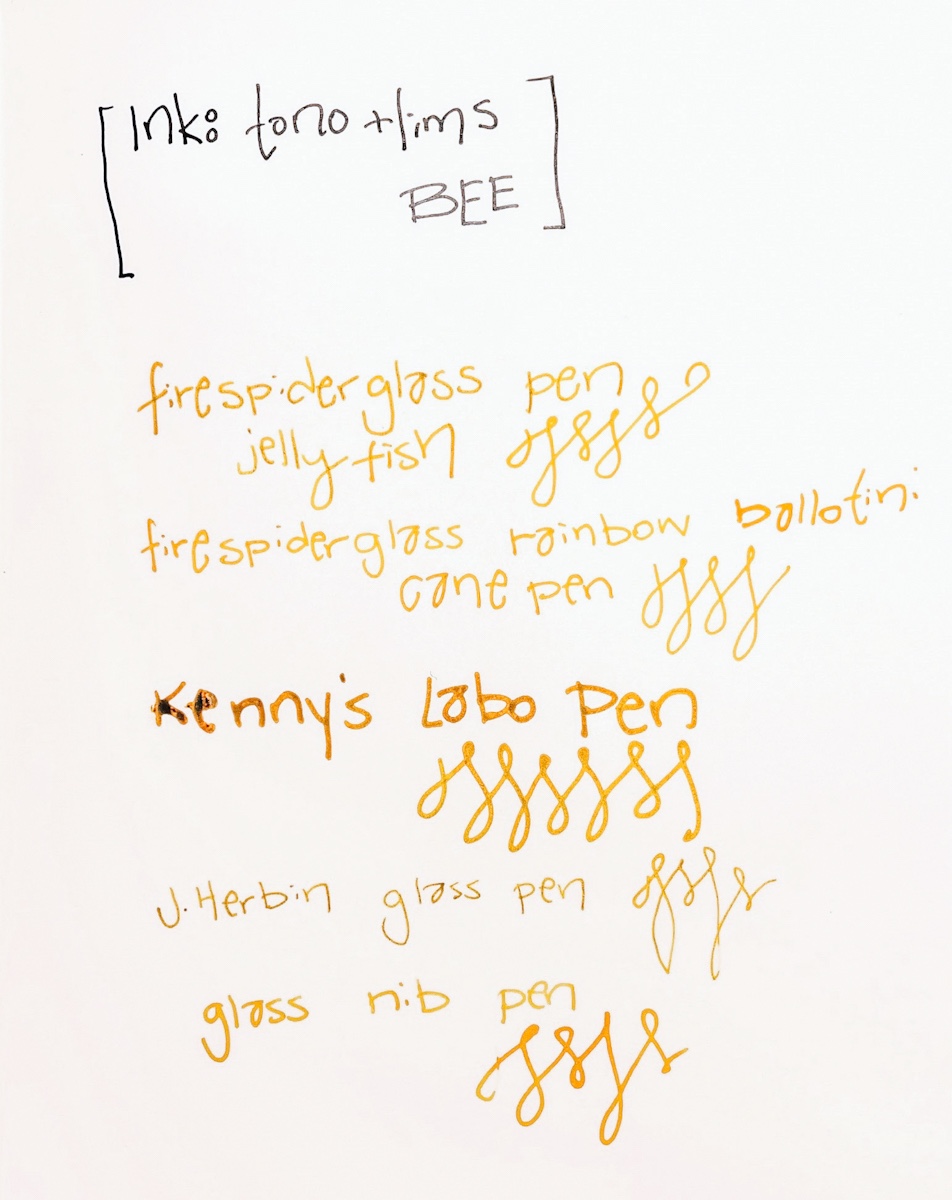 Ink: tono + lims
BEE
firespiderglass pen
jellyfish
firespiderglass rainbow ballotini
cane pen
Kenny's Labo Pen
J. Herbin glass pen
glass nib pen